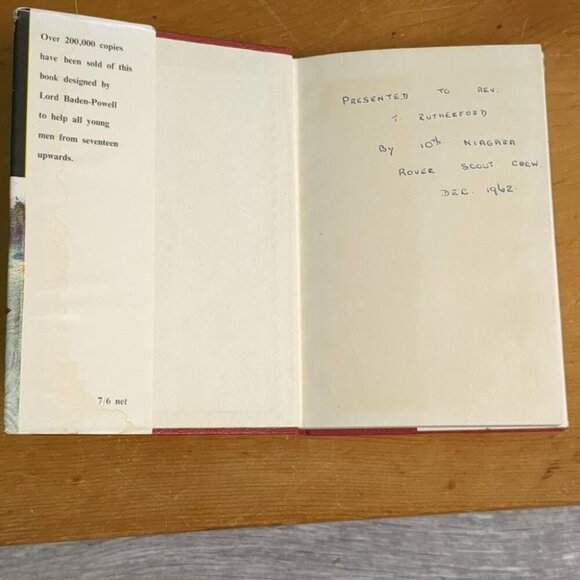 Over 200,000 copies
have been sold of this
book designed by
Lord Baden-Powell
to help all young
men from seventeen
upwards.
7/6 net
PRESENTED TO REV.
T. RUTHERFORD
By 10th NIAGARA
ROVER SCOUT CREW
DEC. 1962.